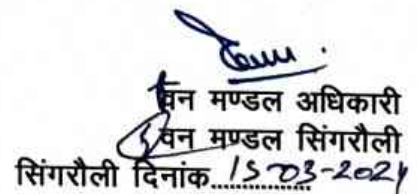 वन मण्डल अधिकारी
वन मण्डल सिंगरौली
सिंगरौली दिनांक 15-03-2024